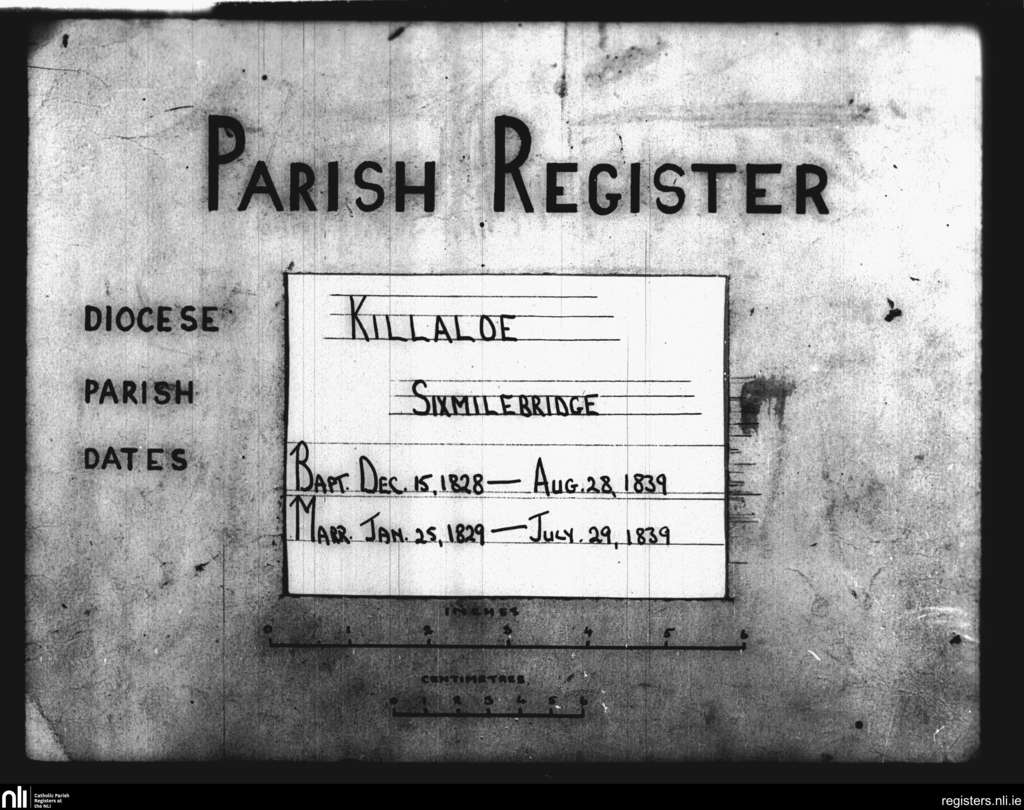 PARISH REGISTER
DIOCESE KILLALOE
PARISH SIXMILEBRIDGE
DATES BAPT. DEC. 15, 1828 — AUG. 28, 1839
MARR. JAN. 25, 1829 — JULY. 29, 1839
INCHES
0 1 2 3 4 5 6
CENTIMETRES
0 1 2 3 4 5 6
nli Catholic Parish
Registers at
the NLI
registers.nli.ie